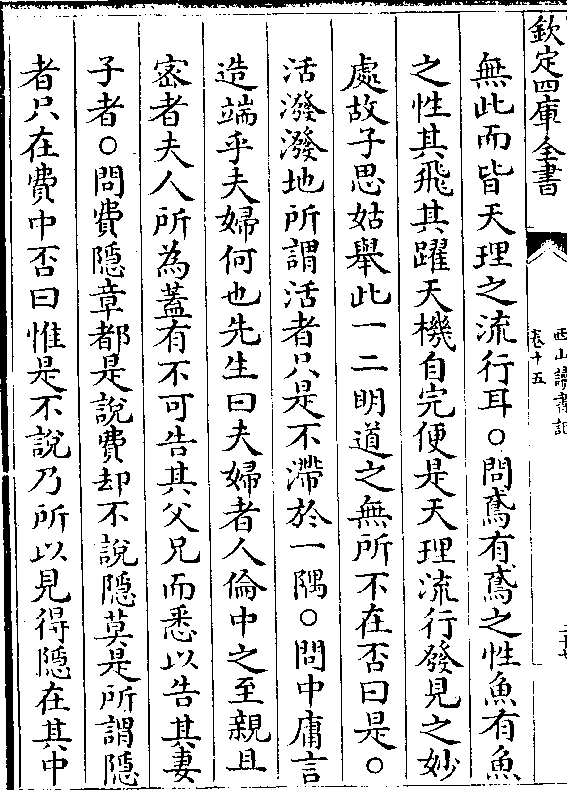 欽定四庫全書
西山讀書記
卷十五
無此而皆天理之流行耳○問鳶有鳶之性魚有魚
之性其飛其躍天機自完便是天理流行發見之妙
處故子思姑舉此一二明道之無所不在否曰是○
活潑潑地所謂活者只是不滯於一隅○問中庸言
造端乎夫婦何也先生曰夫婦者人倫中之至親且
宻者夫人所為蓋有不可告其父兄而悉以告其妻
子者○問費隠章都是說費却不說隠莫是所謂隠
者只在費中否曰惟是不說乃所以見得隠在其中